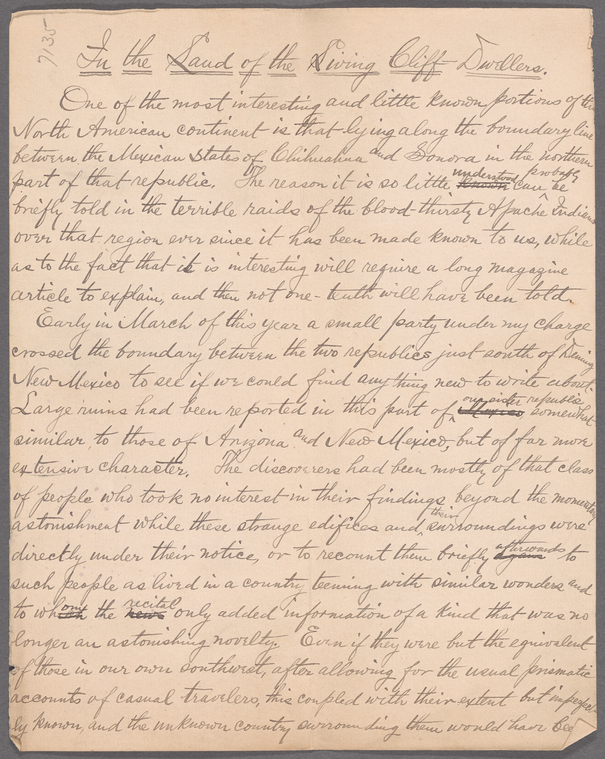 7135
In the Land of the Living Cliff Dwellers.
One of the most interesting and little known portions of the
North American continent is that lying along the boundary line
between the Mexican States of Chihuahua and Sonora in the northern
part of that republic. The reason it is so little understood known can probably be
briefly told in the terrible raids of the blood-thirsty Apache Indians
over that region ever since it has been made known to us, while
as to the fact that it is interesting will require a long magazine
article to explain, and then not one-tenth will have been told.
Early in March of this year a small party under my charge
crossed the boundary between the two republics just south of Deming
New Mexico to see if we could find anything new to write about.
Large ruins had been reported in this part of our sister republic Mexico somewhat
similar to those of Arizona and New Mexico, but of far more
extensive character. The discoverers had been mostly of that class
of people who took no interest in their findings beyond the momentary
astonishment while these strange edifices and their surroundings were
directly under their notice, or to recount them briefly afterwards again to
such people as lived in a country teeming with similar wonders and
to whom the recital news only added information of a kind that was no
longer an astonishing novelty. Even if they were but the equivalent
of those in our own southwest, after allowing for the usual prismatic
accounts of casual travelers, this coupled with their extent but imperfect-
ly known, and the unknown country surrounding them would have